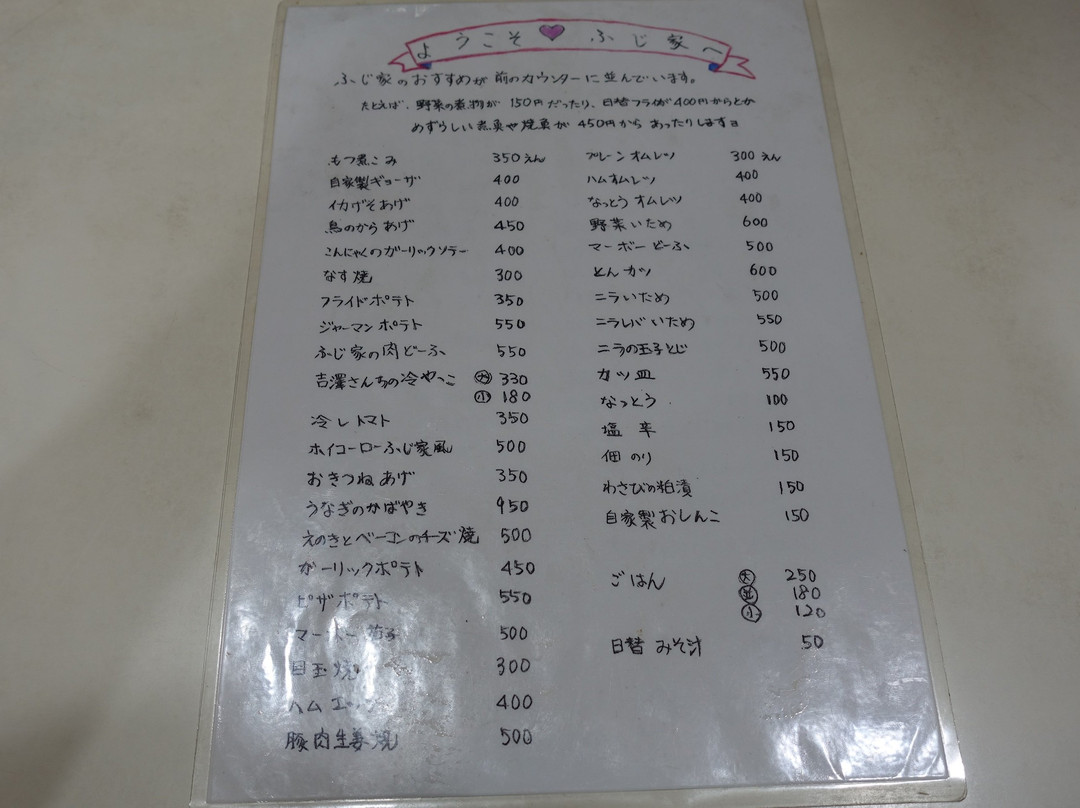 ようこそ ふじ家へ
ふじ家のおすすめが前のカウンターに並んでいます。
たとえば、野菜の煮物が150円だったり、日替フライが400円からとか
めずらしい煮魚や焼魚が450円からあったりしますヨ
もつ煮こみ 350えん
自家製ギョーザ 400
イカげそあげ 400
鳥のからあげ 450
こんにゃくのガーリックソテー 400
なす焼 300
フライドポテト 350
ジャーマンポテト 550
ふじ家の肉どーふ 550
吉澤さんちの冷やっこ 大 330
小 180
冷しトマト 350
ホイコーローふじ家風 500
おきつねあげ 350
うなぎのかばやき 950
えのきとベーコンのチーズ焼 500
ガーリックポテト 450
ピザポテト 550
マーボー茄子 500
目玉焼 300
ハムエッグ 400
豚肉生姜焼 500
プレーンオムレツ 300えん
ハムオムレツ 400
なっとうオムレツ 400
野菜いため 600
マーボーどーふ 500
とんカツ 600
ニラいため 500
ニラレバいため 550
ニラの玉子とじ 500
カツ皿 550
なっとう 100
塩辛 150
佃のり 150
わさびの粕漬 150
自家製おしんこ 150
ごはん 大 250
並 180
小 120
日替みそ汁 50